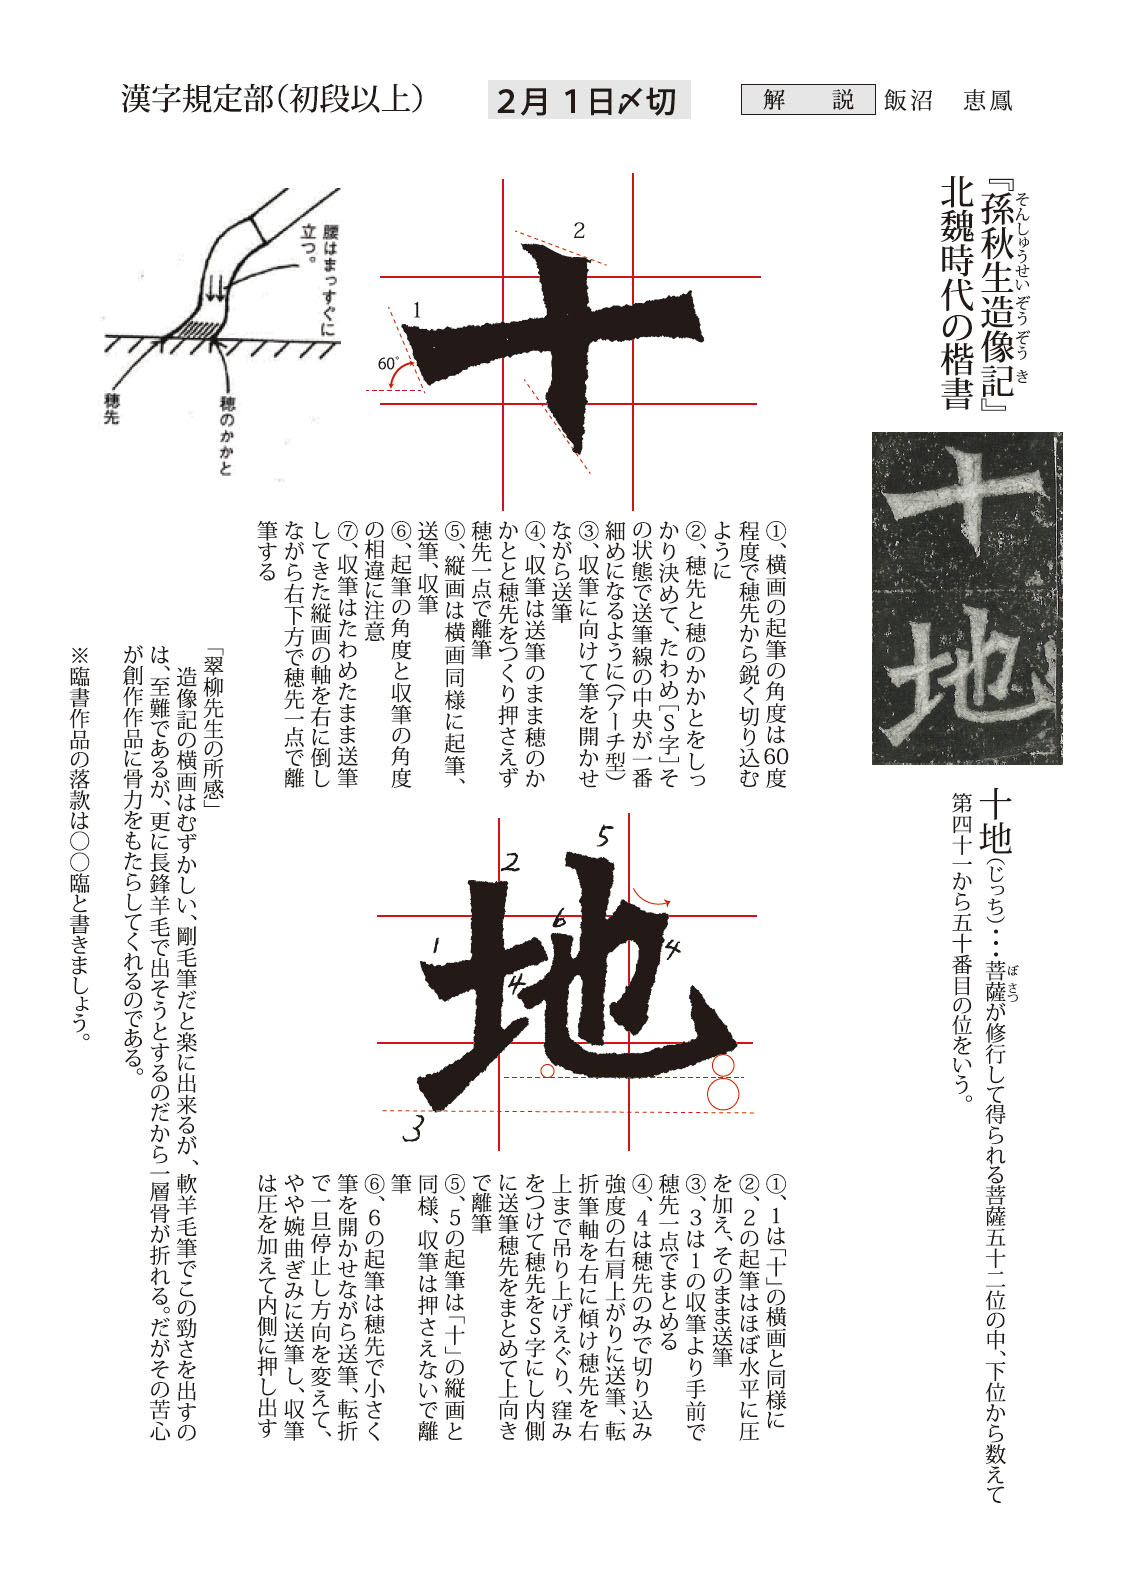 漢字規定部（初段以上）
２月１日〆切
解　説
飯沼　恵鳳
『孫秋生造像記』
そんしゅうせいぞうぞうき
北魏時代の楷書
十地
十地（じっち）・・・菩薩が修行して得られる菩薩五十二位の中、下位から数えて
ぼさつ
第四十一から五十番目の位をいう。
1
2
60°
腰はまっすぐに
立つ。
穂のかかと
穂先
①、横画の起筆の角度は60度
程度で穂先から鋭く切り込む
ように
②、穂先と穂のかかとをしっ
かり決めて、たわめ［Ｓ字］そ
の状態で送筆線の中央が一番
細めになるように（アーチ型）
③、収筆に向けて筆を開かせ
ながら送筆
④、収筆は送筆のまま穂のか
かとと穂先をつくり押さえず
穂先一点で離筆
⑤、縦画は横画同様に起筆、
送筆、収筆
⑥、起筆の角度と収筆の角度
の相違に注意
⑦、収筆はたわめたまま送筆
してきた縦画の軸を右に倒し
ながら右下方で穂先一点で離
筆する
1
2
3
4
4
5
6
①、１は「十」の横画と同様に
②、２の起筆はほぼ水平に圧
を加え、そのまま送筆
③、３は１の収筆より手前で
穂先一点でまとめる
④、４は穂先のみで切り込み
強度の右肩上がりに送筆、転
折筆軸を右に傾け穂先を右
上まで吊り上げえぐり、窪み
をつけて穂先をＳ字にし内側
に送筆穂先をまとめて上向き
で離筆
⑤、５の起筆は「十」の縦画と
同様、収筆は押さえないで離
筆
⑥、６の起筆は穂先で小さく
筆を開かせながら送筆、転折
で一旦停止し方向を変えて、
やや婉曲ぎみに送筆し、収筆
は圧を加えて内側に押し出す
「翠柳先生の所感」
造像記の横画はむずかしい、剛毛筆だと楽に出来るが、軟羊毛筆でこの勁さを出すの
は、至難であるが、更に長鋒羊毛で出そうとするのだから一層骨が折れる。だがその苦心
が創作作品に骨力をもたらしてくれるのである。
※臨書作品の落款は〇〇臨と書きましょう。